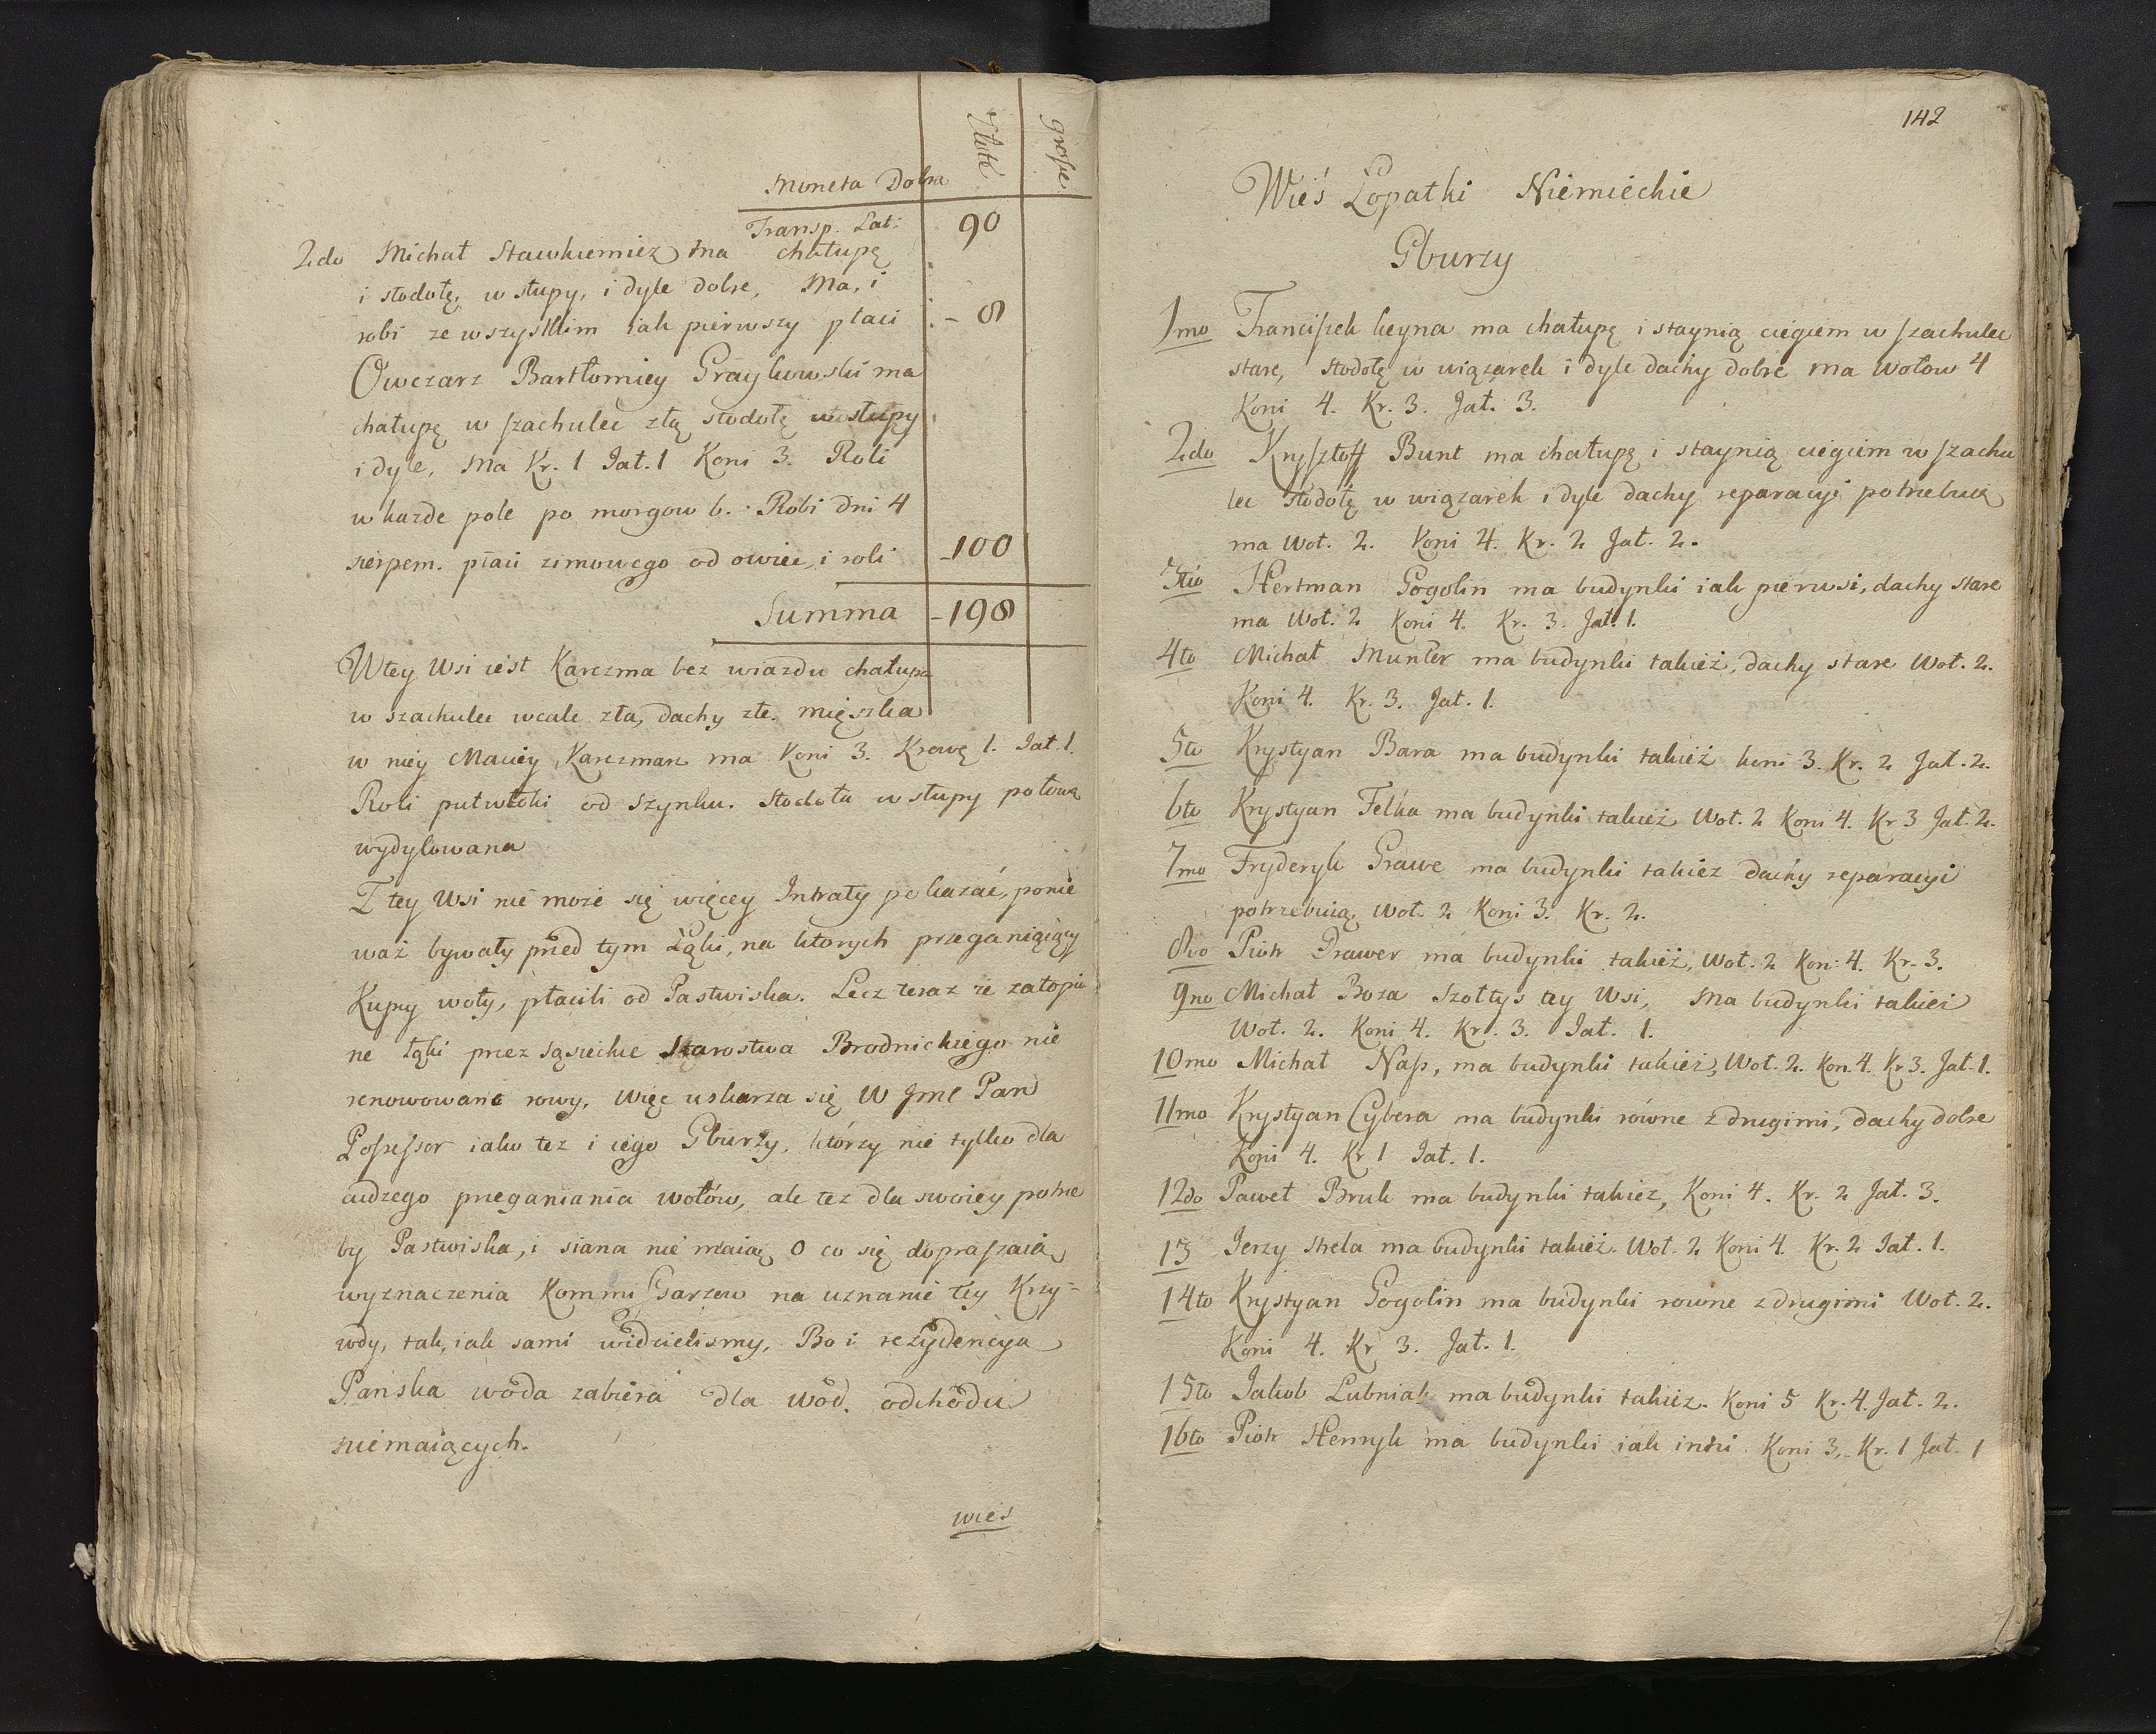 Moneta Dobra
Złote
grosze
Transp. Lat: 90
2do Michał Stawkiewicz ma chałupę
i stodołę, w słupy, i dyle dobre, Ma, i
robi ze wszystkim iak pierwszy płaci - 8
Owczarz Bartłomiey Graykowski ma
chałupę w szachulec złą stodołę w słupy
i dyle, Ma Kr. 1 Jał. 1 Koni 3. Roli
w każde pole po morgow 6. Robi Dni 4
sierpem. płaci zimowego od owiec, i roli - 100
Summa - 198
W tey Wsi iest Karczma bez wiazdu chałupa
w szachulec wcale zła, dachy złe. mięszka
w niey Maciey Karczmarz ma Koni 3. Krowę 1. Jał. 1.
Roli putwłoki od szynku. Stodoła w słupy połowa
wydylowana
Z tey Wsi nie może się więcey Intraty pokazać, ponie
waż bywały przed tym Łąki, na ktorych przeganiaiący
Kupcy woły, płacili od Pastwiska. Lecz teraz że zatopio
ne łąki przez sąsieckie Starostwa Brodnickiego nie
renowowane rowy, więc uskarza się W Jmc Pan
Possessor iako tez i iego Gburzy, którzy nie tylko dla
cudzego przeganiania wołów, ale tez dla swoiey potrze
by Pastwiska, i siana nie maią, o co się dopraszaią
wyznaczenia Kommissarzow na uznanie tey Krzy-
wdy, tak, iak sami widzielismy, Bo i rezydencya
Panska woda zabiera dla wód. odchodu
niemaiących.
wieś
142
Wieś Łopatki Niemieckie
Gburzy
1mo Franciszek heyna ma chałupę i staynią ciągiem w szachulec
stare, stodołę w wiązarek i dyle dachy dobre ma wołow 4
Koni 4. Kr. 3. Jał. 3.
2do Krysztoff Bunt ma chałupę i staynią ciągiem w szachu
lec stodołę w wiązarek i dyle dachy reparacyi potrzebuią
ma Woł. 2. Koni 4. Kr. 2 Jał. 2.
3tio Hertman Gogolin ma budynki iak pierwsi, dachy stare
ma Woł. 2 Koni 4. Kr. 3. Jał. 1.
4to Michał Munter ma budynki takież, dachy stare Woł. 2.
Koni 4. Kr. 3. Jał. 1.
5to Krystyan Bara ma budynki takież koni 3. Kr. 2 Jał. 2.
6to Krystyan Felka ma budynki takież Woł. 2 Koni 4. Kr 3 Jał. 2.
7mo Fryderyk Grawe ma budynki takież dachy reparacyi
potrzebuią, Woł. 2 Koni 3. Kr. 2.
8vo Piotr Drawer ma budynki takież, Woł. 2 Kon: 4. Kr. 3.
9no Michał Boza Szołtys tey Wsi, Ma budynki takież
Woł. 2. Koni 4. Kr. 3. Jał. 1.
10mo Michał Nass, ma budynki takież, Woł. 2. Kon. 4. Kr 3. Jał. 1.
11mo Krystyan Cybera ma budynki równe z drugimi, dachy dobre
Koni 4. Kr 1 Jał. 1.
12do Paweł Bruk ma budynki takież, Koni 4. Kr. 2 Jał. 3.
13 Jerzy Strela ma budynki takież. Woł. 2 Koni 4 Kr. 2 Jał. 1.
14to Krystyan Gogolin ma budynki rowne z drugimi Woł. 2.
Koni 4. Kr 3. Jał. 1.
15to Jakob Lubniak ma budynki takież. Koni 5 Kr. 4. Jał. 2.
16to Piotr Henryk ma budynki iak inśi Koni 3, Kr. 1 Jał. 1